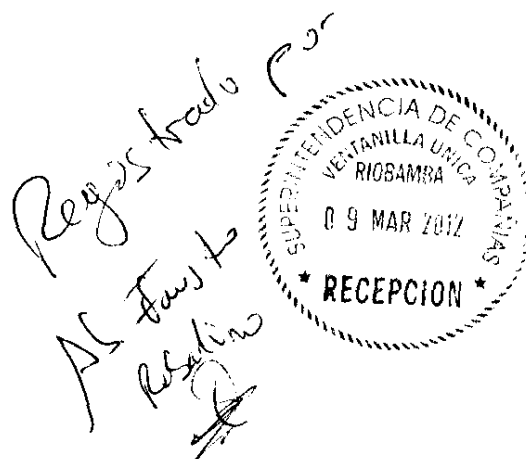 Registrado por
Ab. Fausto
SUPERINTENDENCIA DE COMPAÑIAS
VENTANILLA UNICA
RIOBAMBA
09 MAR 2012
* RECEPCION *